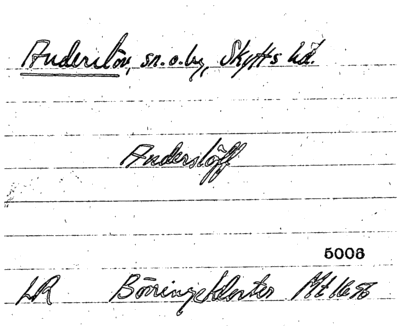 Anderslöv, sn. o. by, Skytts hd.
Anderslöff
5006
LR Böringekloster Mt 1656